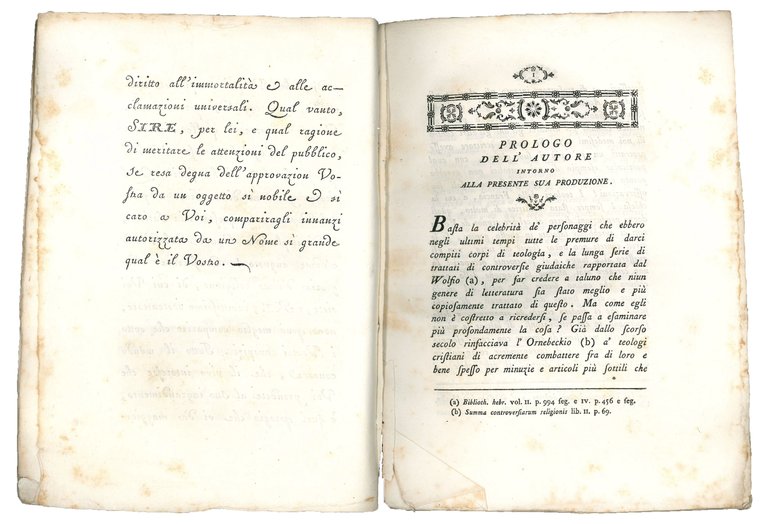 diritto all'immortalità e alle ac-
clamazioni universali. Qual vanto,
SIRE, per lei, e qual ragione
di meritare le attenzioni del pubblico,
se resa degna dell'approvazion Vo-
stra da un oggetto sì nobile e sì
caro a Voi, compariragli innanzi
autorizzata da un Nome sì grande
qual è il Vostro.
I
PROLOGO
DELL' AUTORE
INTORNO
ALLA PRESENTE SUA PRODUZIONE.
Baſta la celebrità de' perſonaggi che ebbero
negli ultimi tempi tutte le premure di darci
compiti corpi di teologia, e la lunga ſerie di
trattati di controverſie giudaiche rapportata dal
Wolfio (a), per far credere a taluno che niun
genere di letteratura ſia ſtato meglio e più
copioſamente trattato di queſto. Ma come egli
non è coſtretto a ricrederſi, ſe paſſa a eſaminare
più profondamente la coſa? Già dallo ſcorſo
secolo rinfacciava l' Ornebeckio (b) a' teologi
criſtiani di acremente combattere fra di loro e
bene ſpeſſo per minuzie e articoli più ſottili che
(a) Biblioth. hebr. vol. II. p. 994 ſeg. e IV. p. 456 e ſeg.
(b) Summa controverſiarum religionis lib. II. p. 69.